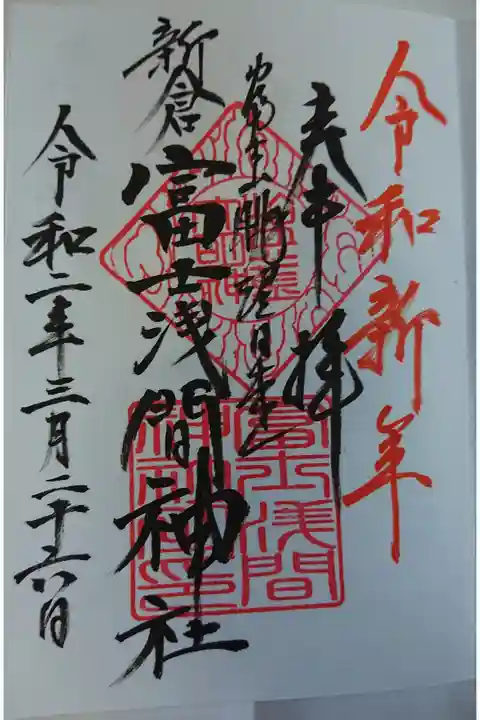 令和新年
奉拝
富士眺望日本一
新倉富士浅間神社
令和二年三月二十六日
富士浅間